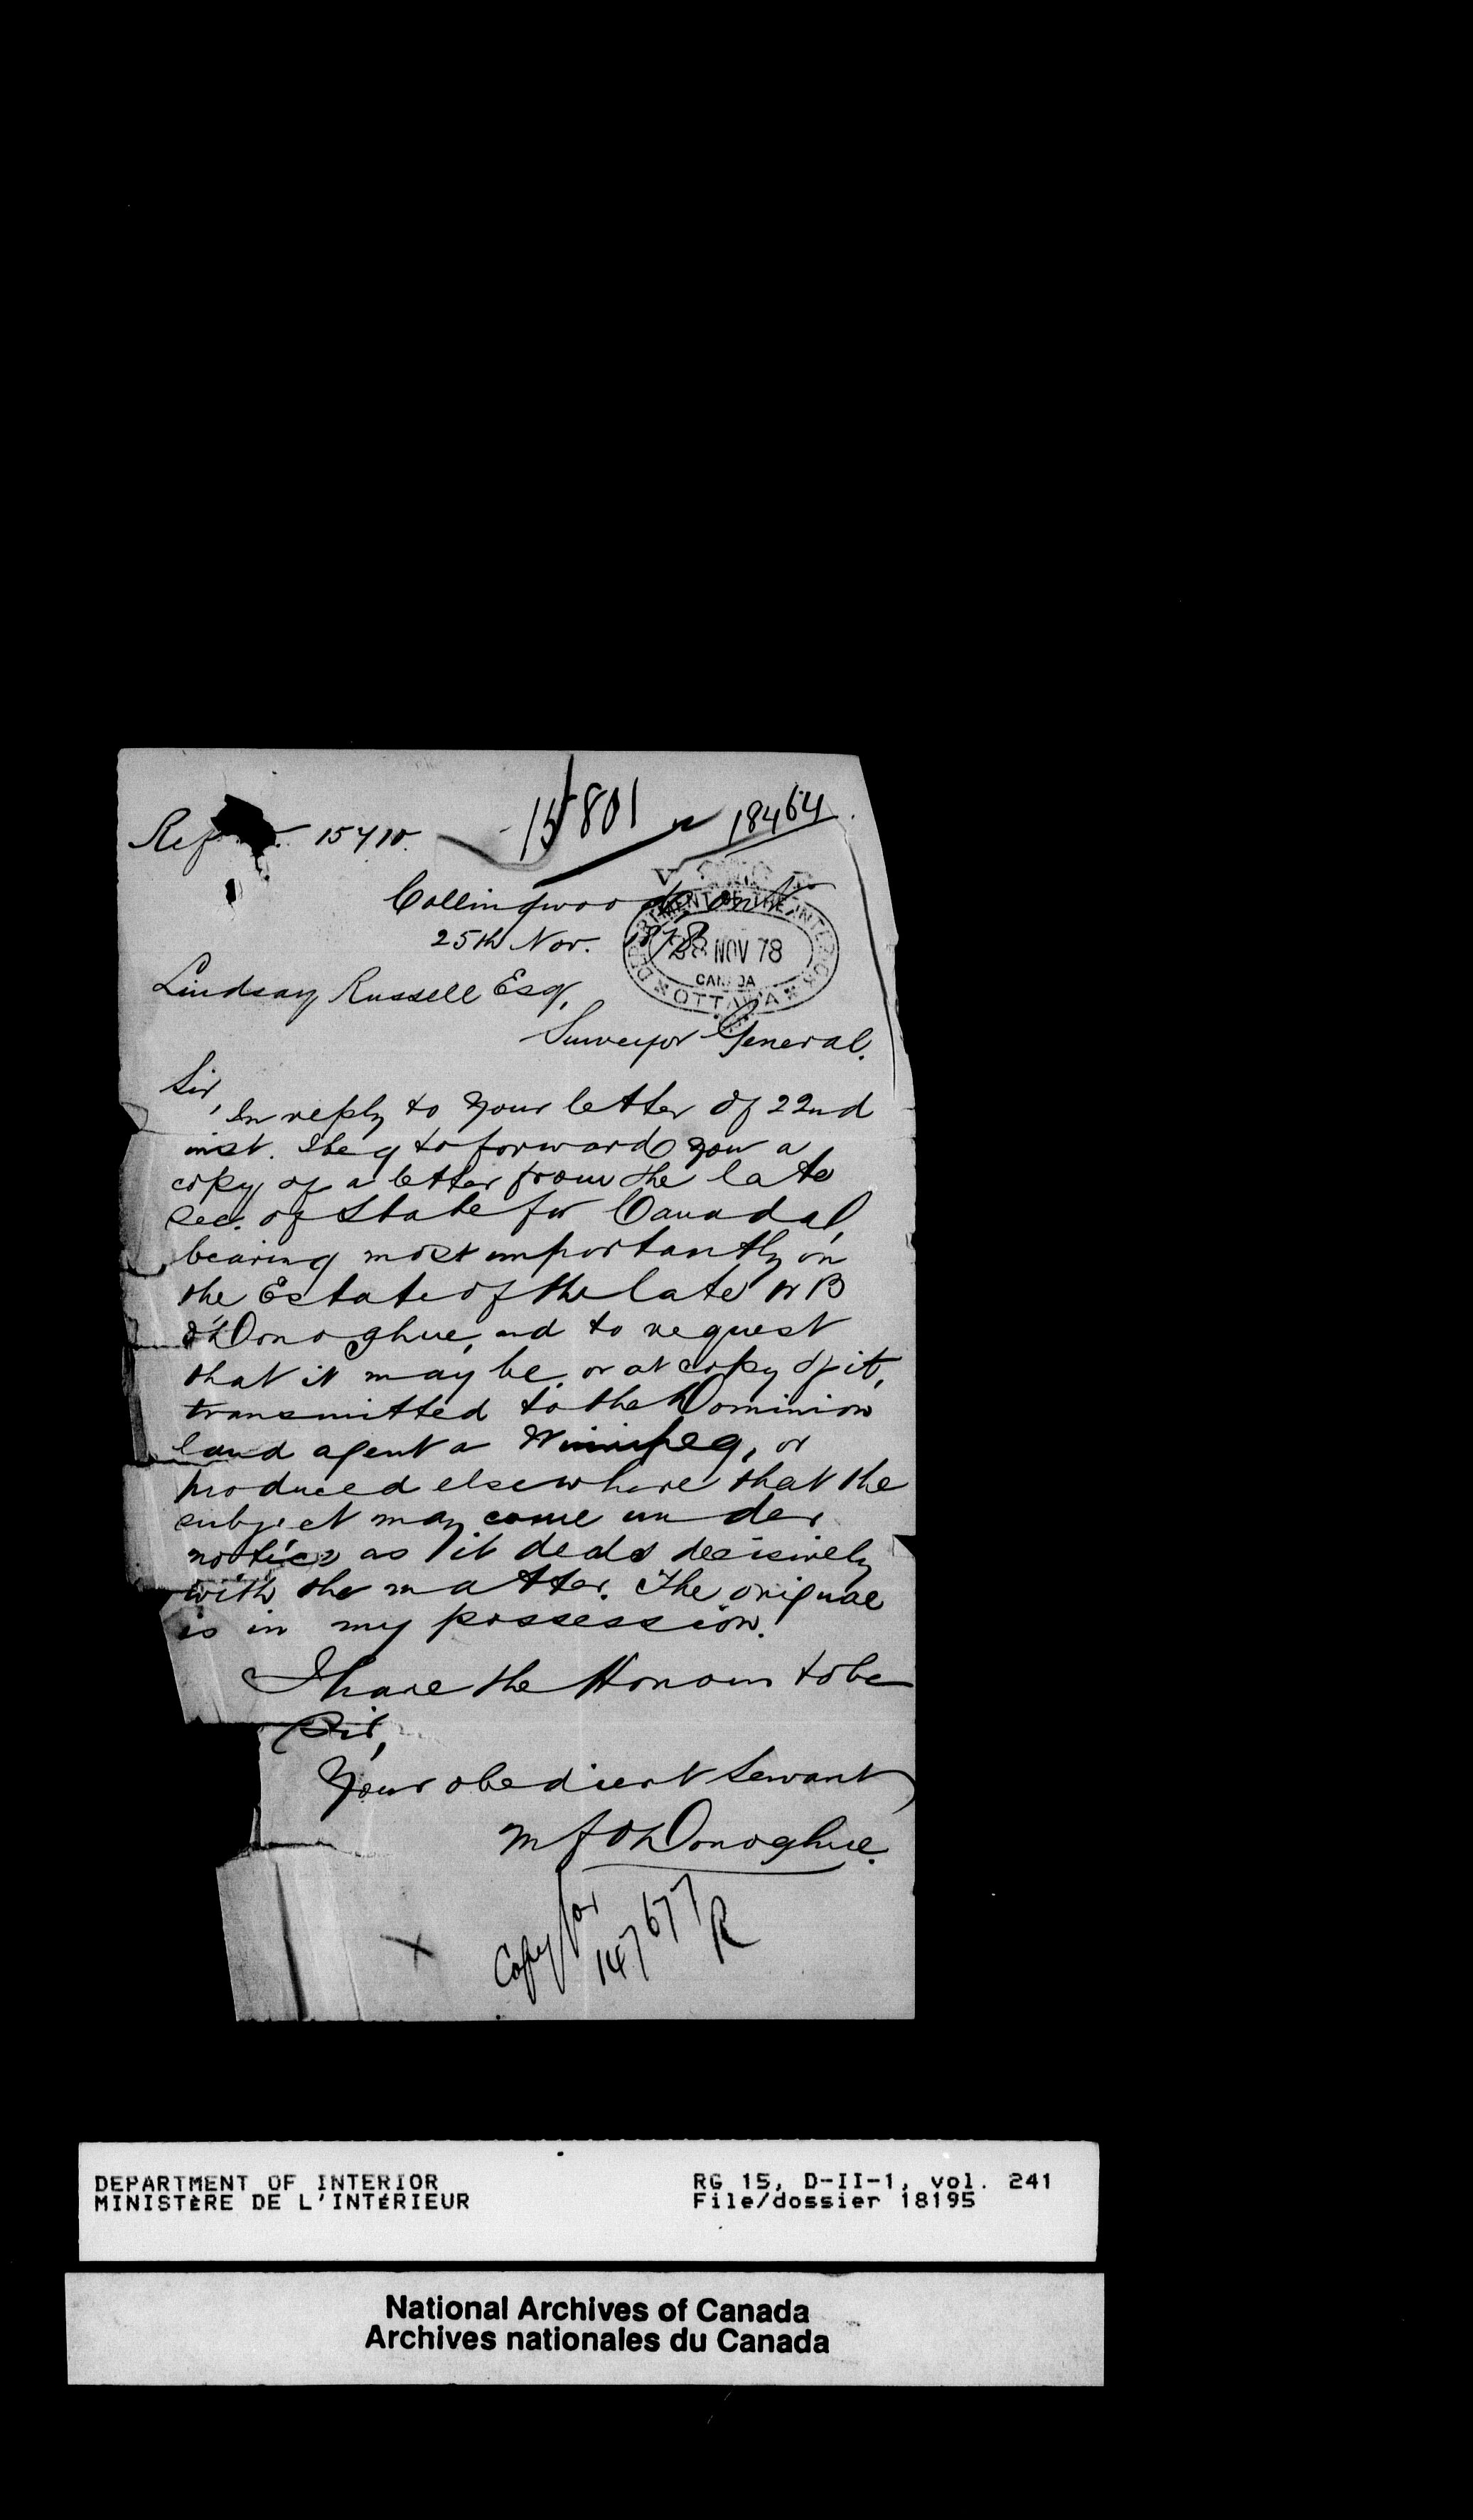 Ref 15710. 15801 18464
Collingwood Ont
25th Nov. 1878
DEPARTMENT OF THE INTERIOR
28 NOV 78
CANADA
OTTAWA
Lindsay Russell Esq,
Surveyor General.
Sir,
In reply to your letter of 22nd
inst. I beg to forward you a
copy of a letter from the late
Sec. of State for Canada,
bearing most importantly on
the Estate of the late W B
O'Donoghue, and to request
that it may be, or a copy of it,
transmitted to the Dominion
land agent a Winnipeg, or
produced elsewhere that the
subject may come under
notice as it deals decisively
with the matter. The original
is in my possession.
I have the Honour to be
Sir,
Your obedient Servant
M J O'Donoghue.
Copy for
147677
R
DEPARTMENT OF INTERIOR RG 15, D-II-1, vol. 241
MINISTÈRE DE L'INTÉRIEUR File/dossier 18195
National Archives of Canada
Archives nationales du Canada